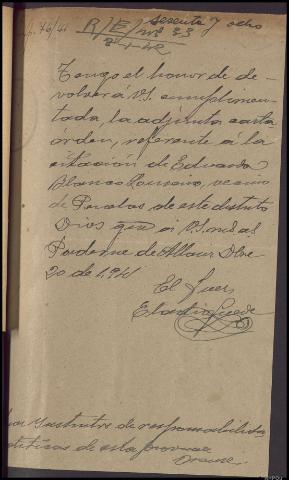 sesenta y ocho
76/41 R/E/nº 33
Tengo el honor de de-
volver á V.S. cumplimen-
tada, la adjunta carta
órden, referente á la
citación de Eduardo
Blanco, vecino
de de este distrito
Dios gue á V.S. m. as
Paderne de Allariz Dbre
20 de 1941
El Juez
instructor de responsabilida
políticas de esta provincia
Orense